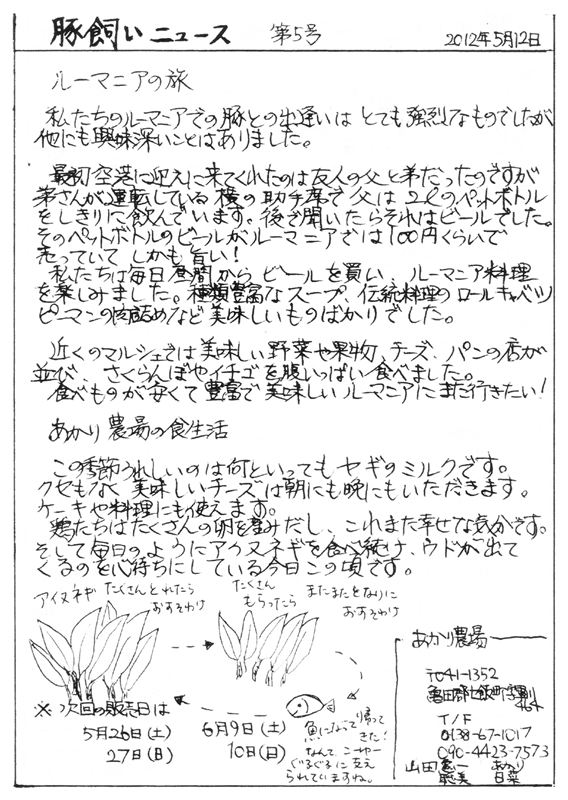 豚飼いニュース 第5号 2012年5月12日
ルーマニアの旅
私たちのルーマニアでの豚との出逢いは とても強烈なものでしたが
他にも興味深いことはありました。
最初空港に迎えに来てくれたのは友人の父と弟だったのですが
弟さんが運転している横の助手席で父は2ℓのペットボトル
をしきりに飲んでいます。後で聞いたらそれはビールでした。
そのペットボトルのビールがルーマニアでは100円くらいで
売っていて しかも旨い!
私たちは毎日昼間からビールを買い、ルーマニア料理
を楽しみました。種類豊富なスープ、伝統料理のロールキャベツ
ピーマンの肉詰めなど美味しいものばかりでした。
近くのマルシェでは美味しい野菜や果物、チーズ、パンの店が
並び、さくらんぼやイチゴを腹いっぱい食べました。
食べものが安くて豊富で美味しいルーマニアにまた行きたい!
あかり農場の食生活
この季節うれしいのは何といってもヤギのミルクです。
クセもなく美味しいチーズは朝にも晩にもいただきます。
ケーキや料理にも使えます。
鶏たちはたくさんの卵を産みだし、これまた幸せな気分です。
そして毎日のようにアイヌネギを食べ続け、ウドが出て
くるのを心待ちにしている今日この頃です。
アイヌネギ
たくさんとれたら
おすそわけ
たくさん
もらったら
またまたとなりに
おすそわけ
魚になって帰って
きた!
なんて、こーゆー
ぐるぐるに支え
られていますね。
※次回の販売日は
5月26日(土)
27日(日)
6月9日(土)
10日(日)
あかり農場
〒041-1352
亀田郡七飯町
T/F
0138-67-1017
090-4423-7573
山田 憲一 あかり
聡美 日菜